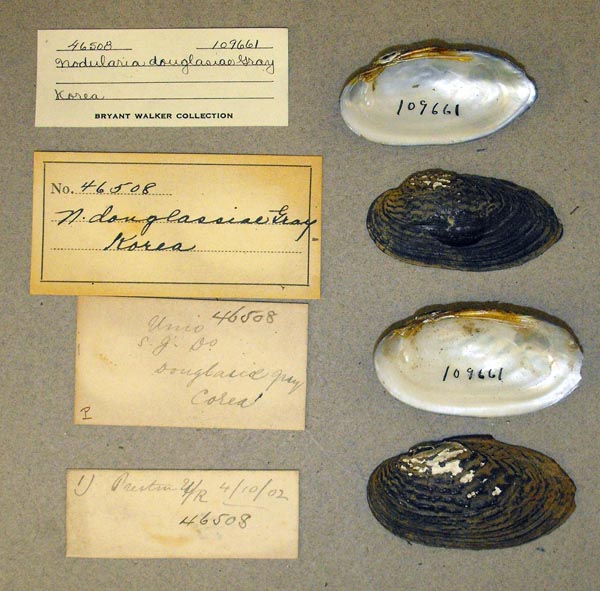 46508 109661
Nodularia douglasiae Gray
Korea
BRYANT WALKER COLLECTION
No. 46508
N. douglassiae Gray
Korea
46508
Unio
S.g. Do
Douglasiae gray
Corea
1) Preston 4/10/02
46508
109661
109661